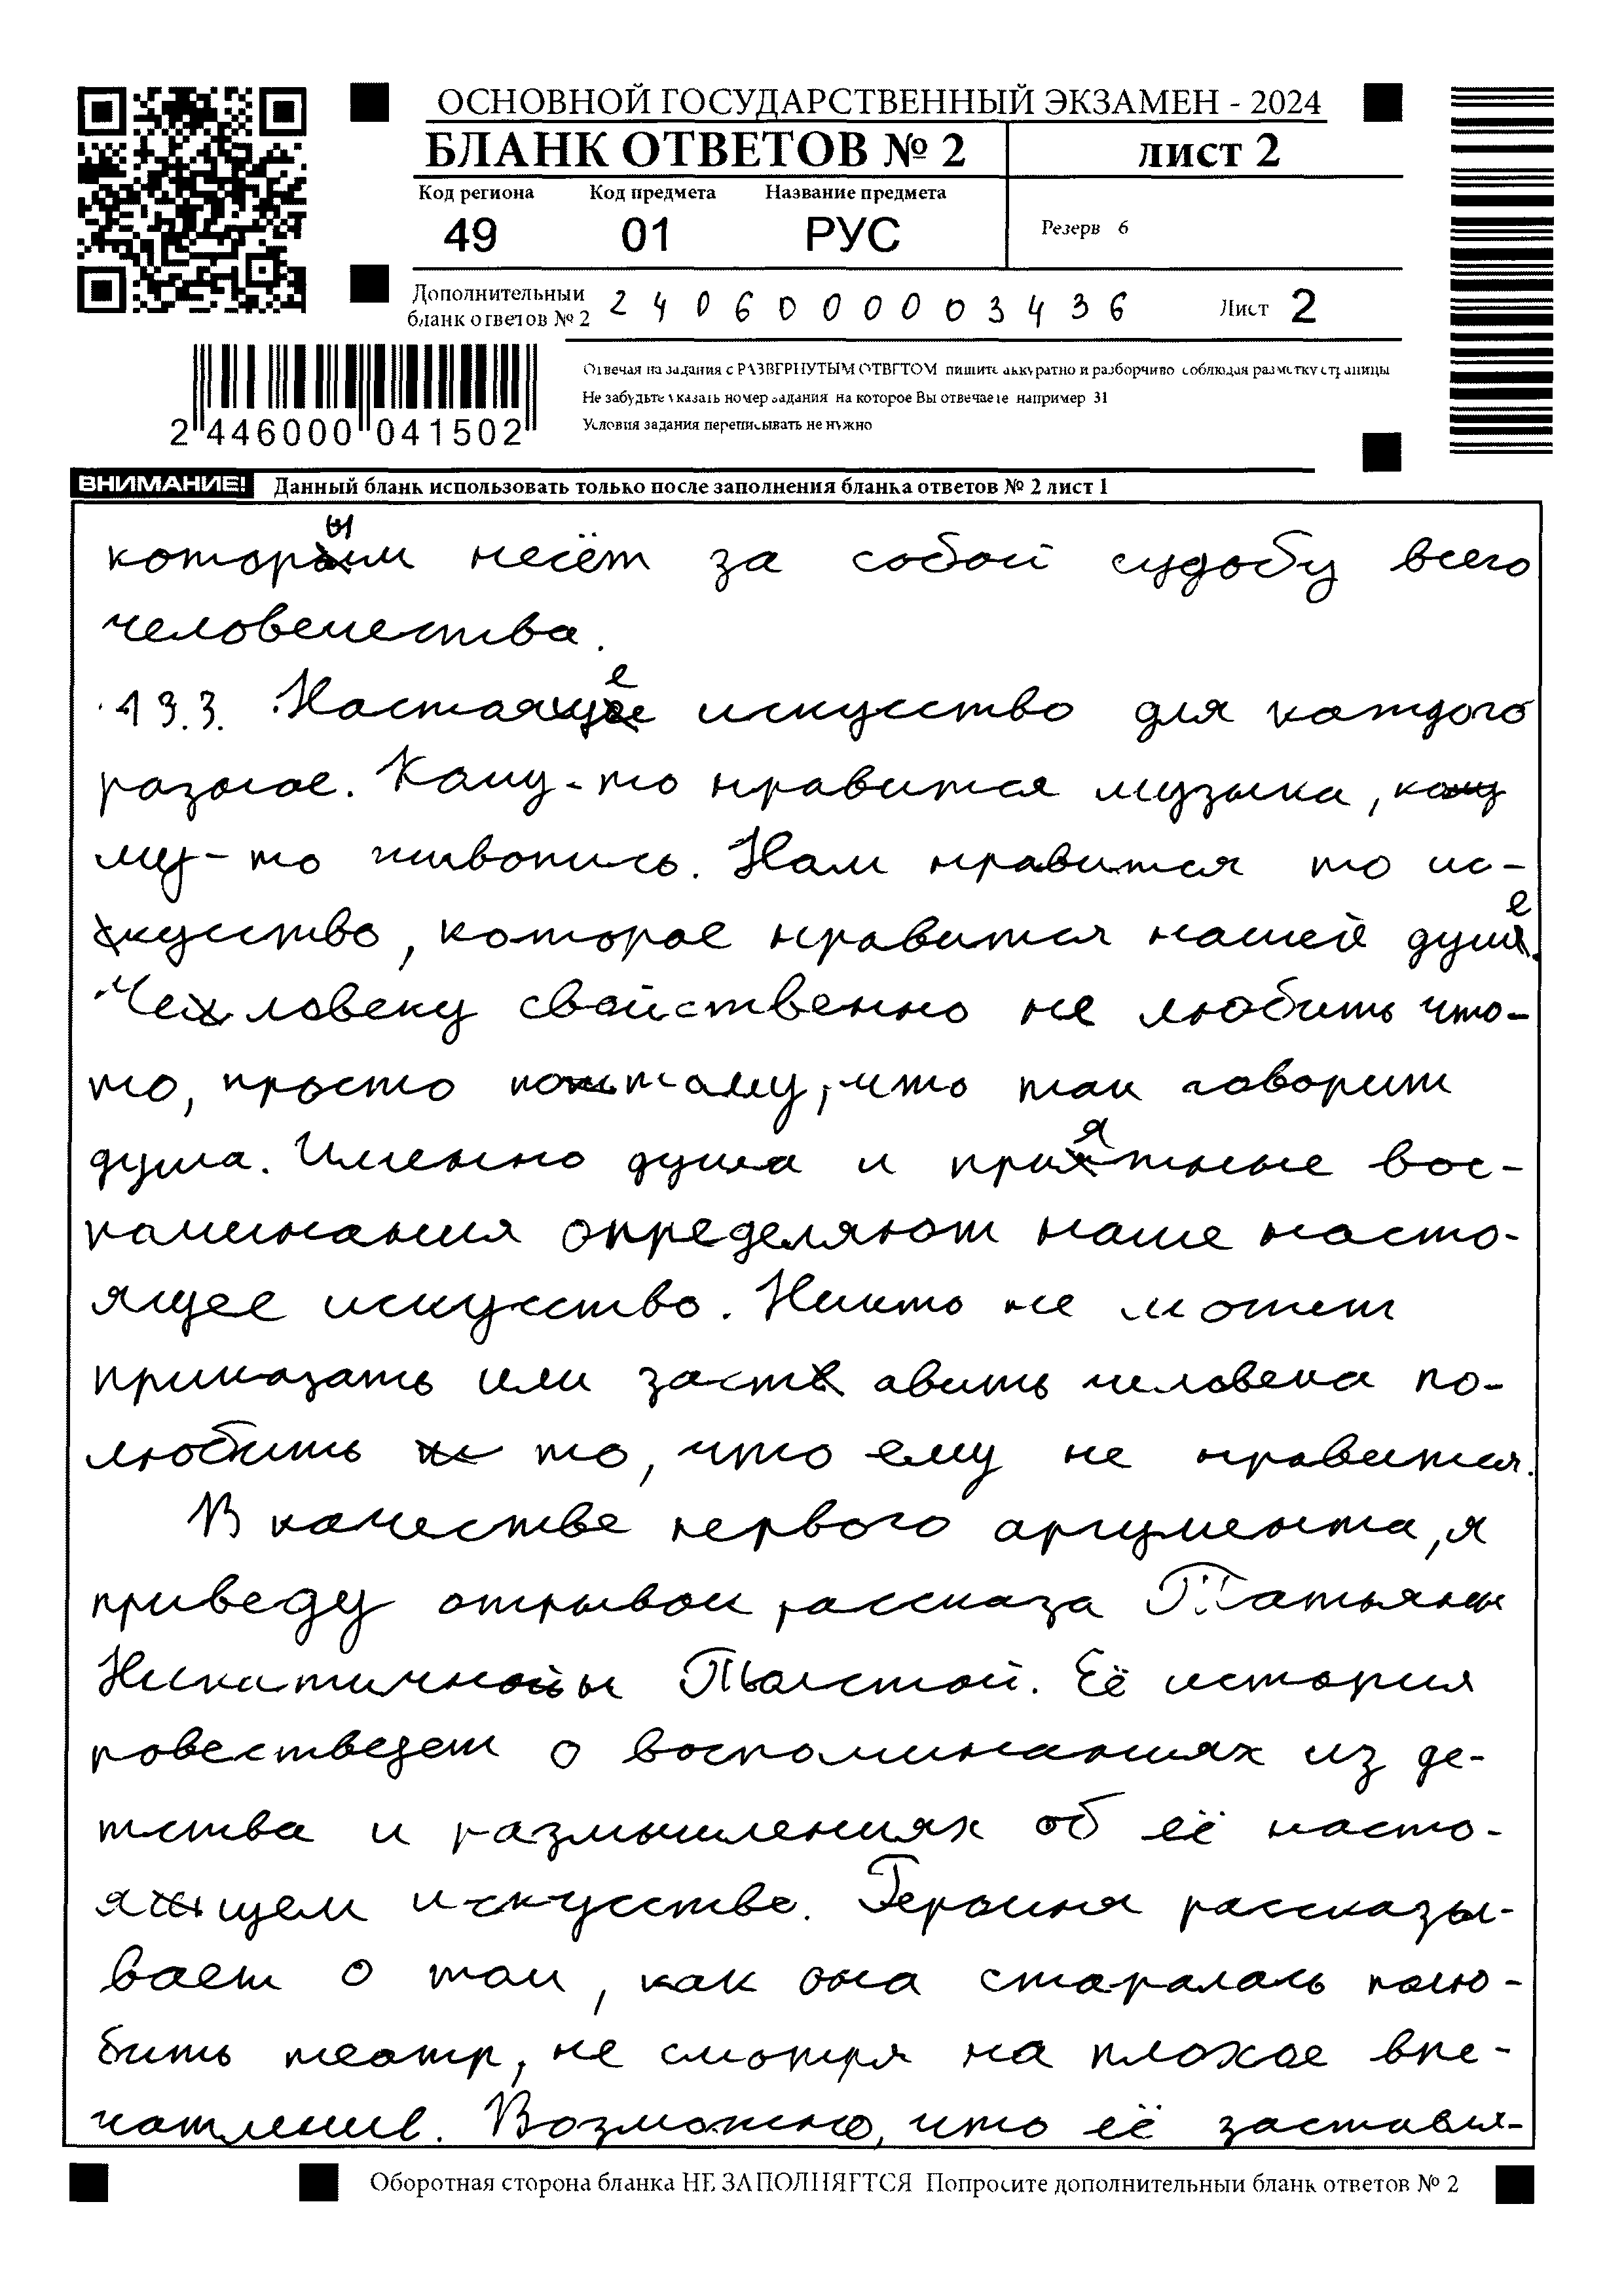 ОСНОВНОЙ ГОСУДАРСТВЕННЫЙ ЭКЗАМЕН - 2024
БЛАНК ОТВЕТОВ № 2
лист 2
Код региона Код предмета Название предмета
49 01 РУС
Резерв 6
Дополнительный
бланк ответов № 2
2406000003436
Лист 2
Отвечая на задания с РАЗВЕРНУТЫМ ОТВЕТОМ пишите аккуратно и разборчиво соблюдая разметку страницы
Не забудьте указать номер задания на которое Вы отвечаете например 31
Условия задания переписывать не нужно
2 446000 041502
ВНИМАНИЕ! Данный бланк использовать только после заполнения бланка ответов № 2 лист 1
которым несёт за собой судобу всего
человечества.
13.3. Настоящее искусство для каждого
разное. Кому-то нравится музыка, ко
му-то живопись. Нам нравится то ис-
кусство, которое нравится нашей душе.
Человеку свойственно не любить что-
то, просто потому, что так говорит
душа. Именно душа и приятные вос-
поминания определяют наше насто-
ящее искусство. Никто не может
приказать или заставить человека по-
любить то, что ему не нравится.
В качестве первого аргумента, я
приведу отрывок рассказа Татьяны
Никитичны Толстой. Её история
повествует о воспоминаниях из де-
тства и размышлениях об её насто-
ящем искусстве. Героиня рассказы-
вает о том, как она старалась полю-
бить театр, не смотря на плохое впе-
чатление. Возможно, что её заставля-
Оборотная сторона бланка НЕ ЗАПОЛНЯЕТСЯ Попросите дополнительный бланк ответов № 2